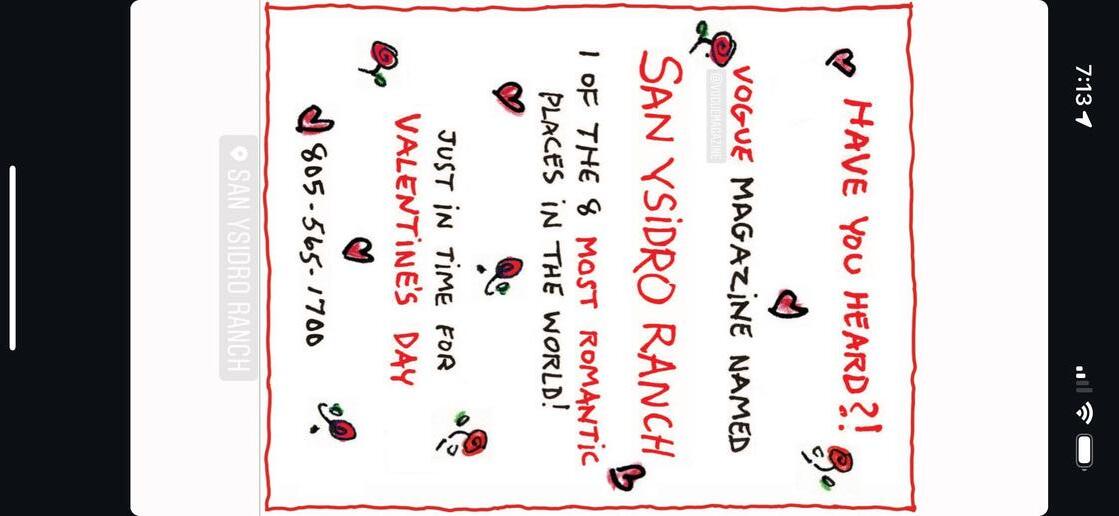 7:13
HAVE YOU HEARD?!
VOGUE MAGAZiNE NAMED
@VOGUEMAGAZINE
SAN YSiDRO RANCH
1 OF THE 8 MOST ROMANTiC
PLACES iN THE WORLD!
JUST iN TiME FOR
VALENTiNE'S DAY
805-565-1700
SAN YSIDRO RANCH